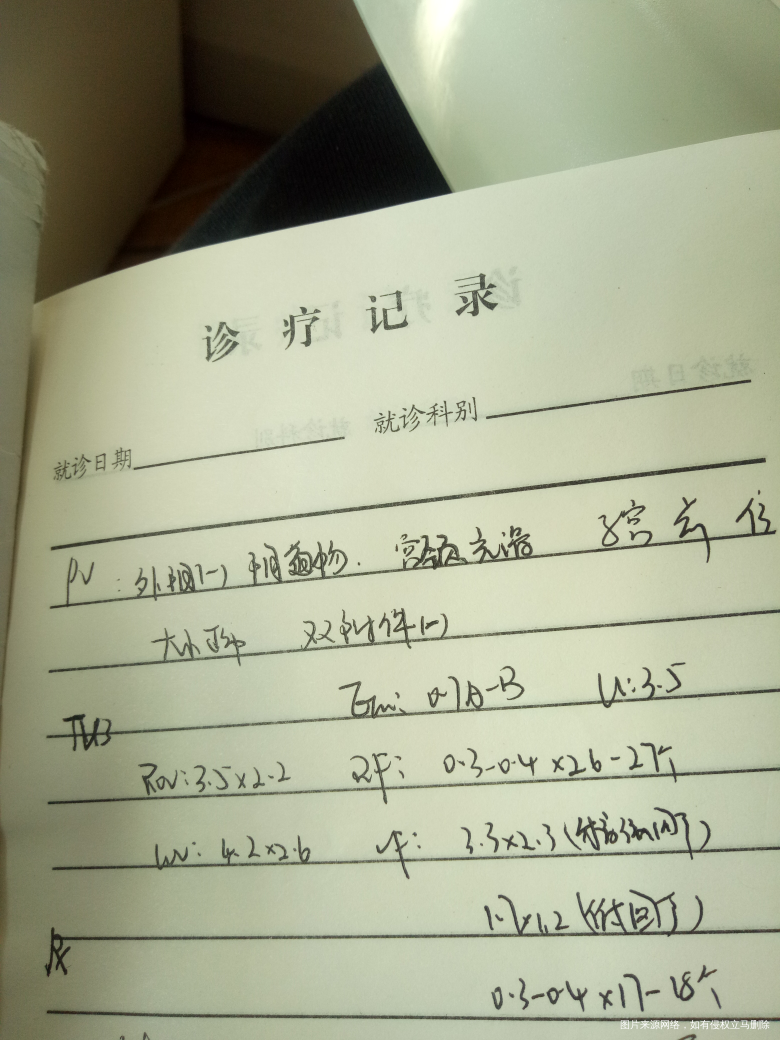 诊疗记录
就诊日期 就诊科别
PV：外阴(-) 阴道畅. 宫颈光滑 子宫前位
大小正常 双附件(-)
TVB Em: 0.7A-B U:3.5
Rov:3.5×2.2 RF: 0.3-0.4×26-27个
Lov: 4.2×2.6 LF: 3.3×2.3(
1.7×1.2(
Rx
0.3-0.4×17-18个
图片来源网络，如有侵权立马删除